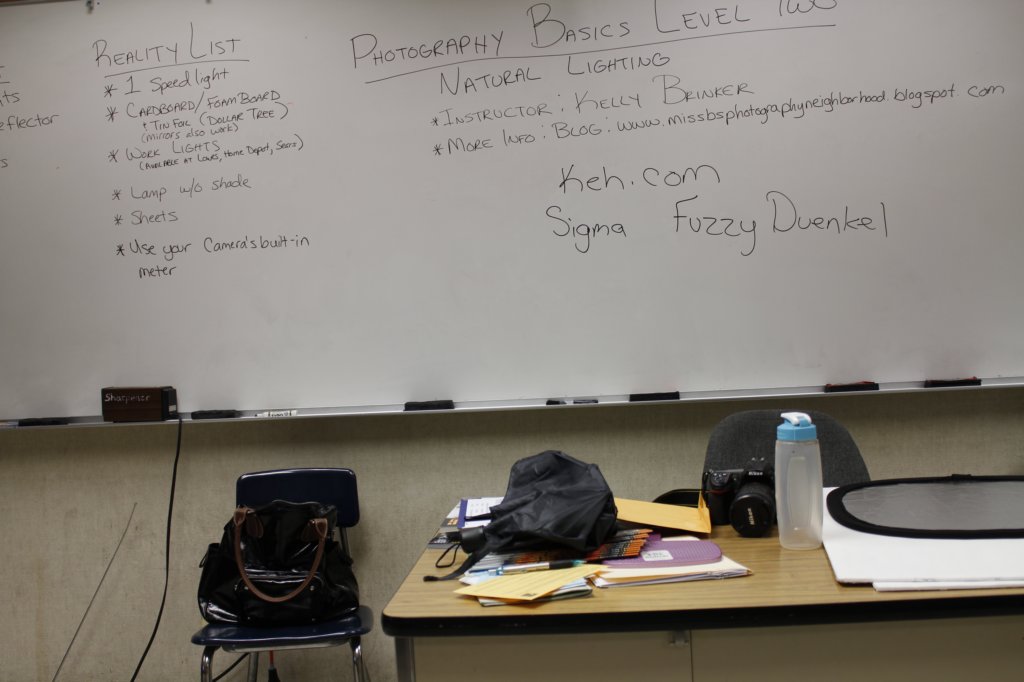 REALITY LIST
* 1 Speedlight
* CARDBOARD/FOAM BOARD
+ TIN FOIL (DOLLAR TREE)
(mirrors also work)
* WORK LIGHTS
(AVAILABLE AT LOWES, HOME DEPOT, SEARS)
* Lamp w/o shade
* Sheets
* Use your Camera's built-in
meter
eflector
PHOTOGRAPHY BASICS LEVEL TWO
NATURAL LIGHTING
* INSTRUCTOR: KELLY BRINKER
* MORE INFO: BLOG: www.missbsphotographyneighborhood.blogspot.com
Keh.com
Sigma Fuzzy Duenkel
Sharpener
Nikon